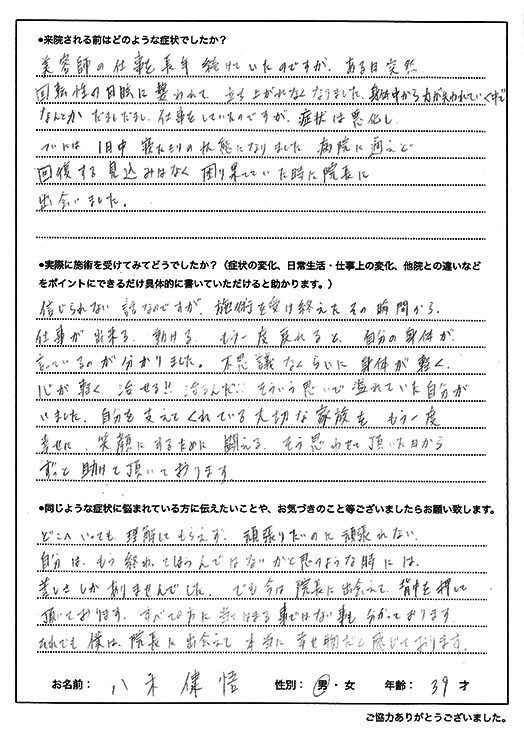 ●来院される前はどのような症状でしたか？
美容師の仕事を長年続けていたのですが、ある日突然、
回転性の目眩に襲われて、立ち上がれなくなりました。身体中から力が失われていく中で
なんとかだましだまし、仕事をしていたのですが、症状は悪化し、
ついには1日中寝たきりの状態になりました。病院に通えど
回復する見込みはなく困り果てていた時に院長に
出会いました。
●実際に施術を受けてみてどうでしたか？（症状の変化、日常生活・仕事上の変化、他院との違いなど
をポイントにできるだけ具体的に書いていただけると助かります。）
信じられない話なのですが、施術を受け終えたその瞬間から、
仕事が出来る、動ける、もう一度戻れると、自分の身体が
言っているのが分かりました。不思議なくらいに身体が軽く、
心が軽く、治せる!!治るんだ!!そういう思いで溢れていた自分が
いました。自分を支えてくれている大切な家族を、もう一度
幸せに、笑顔にするために闘える。そう思わせて頂いた日から
ずっと助けて頂いております
●同じような症状に悩まれている方に伝えたいことや、お気づきのこと等ございましたらお願い致します。
どこへいっても理解してもらえず、頑張りたいのに頑張れない、
自分は、もう終わってしまうんではないかと思うような時には、
苦しさしかありませんでした。でも今は院長に出会えて、背中を押して
頂いております。すべての方に当てはまる事ではない事も分かっております。
それでも僕は、院長に出会えて本当に幸せ物だと感じております。
お名前： 八木 健悟 性別：男・女 年齢：39才
ご協力ありがとうございました。